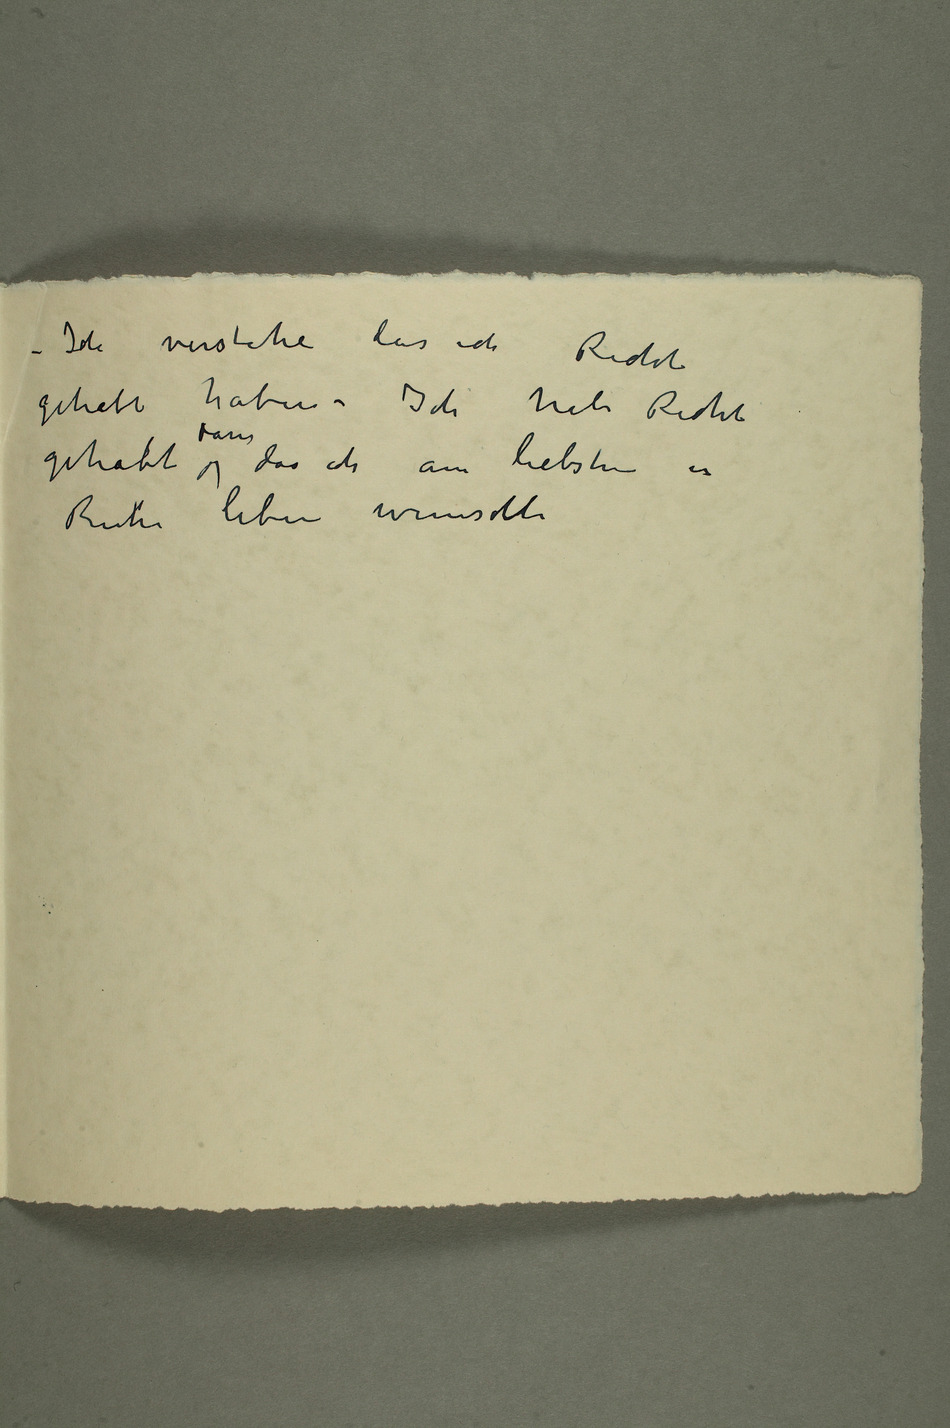 – Ich verstehe das ich Recht
gehabt haben – Ich hab Recht
gehabt das ich am liebsten in
Ruhe leben wunschte